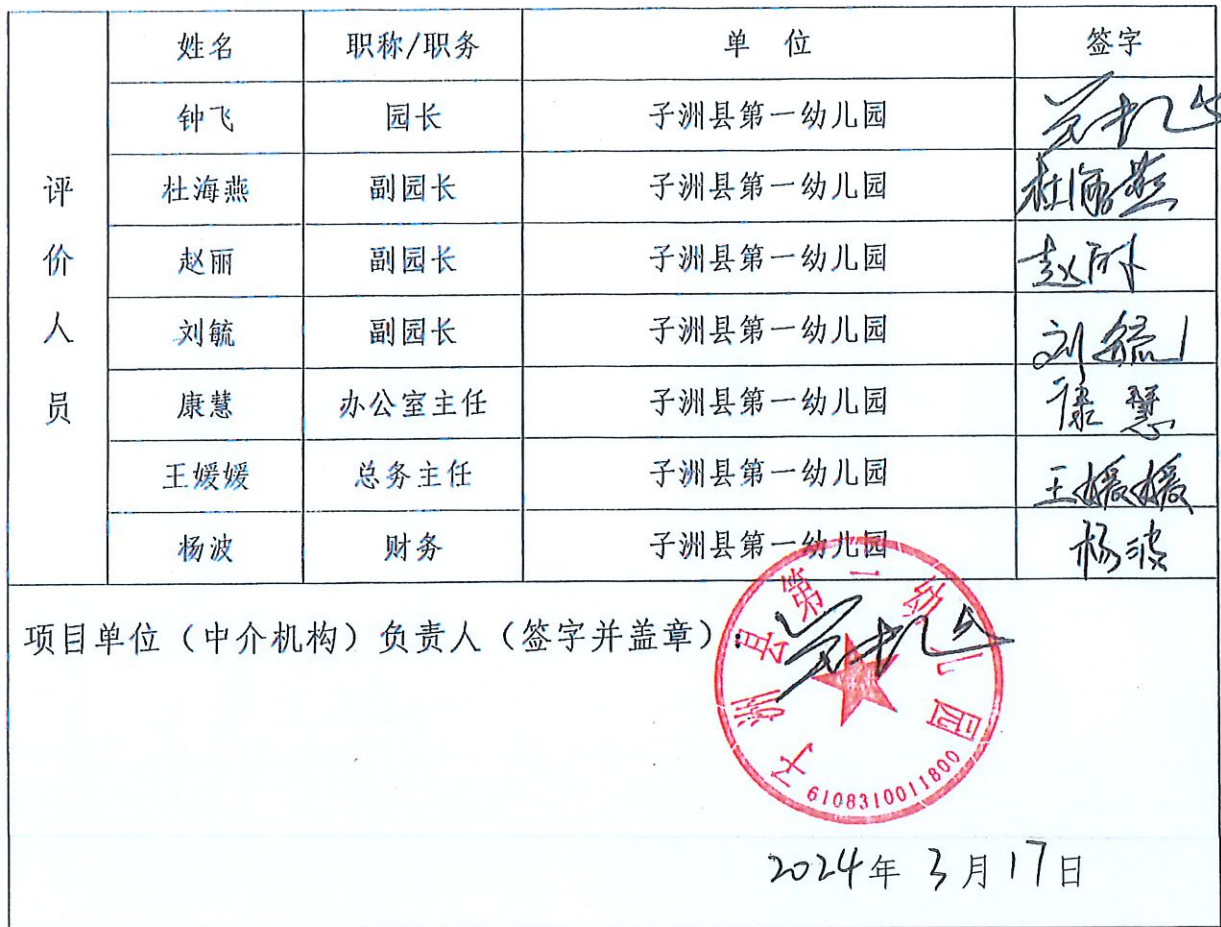 姓名 职称/职务 单 位 签字
钟飞 园长 子洲县第一幼儿园
杜海燕 副园长 子洲县第一幼儿园 杜海燕
赵丽 副园长 子洲县第一幼儿园 赵丽
刘毓 副园长 子洲县第一幼儿园 刘毓
康慧 办公室主任 子洲县第一幼儿园 康慧
王媛媛 总务主任 子洲县第一幼儿园 王媛媛
杨波 财务 子洲县第一幼儿园 杨波
评价人员
项目单位（中介机构）负责人（签字并盖章）：
子洲县第一幼儿园
6108310011800
2024年3月17日